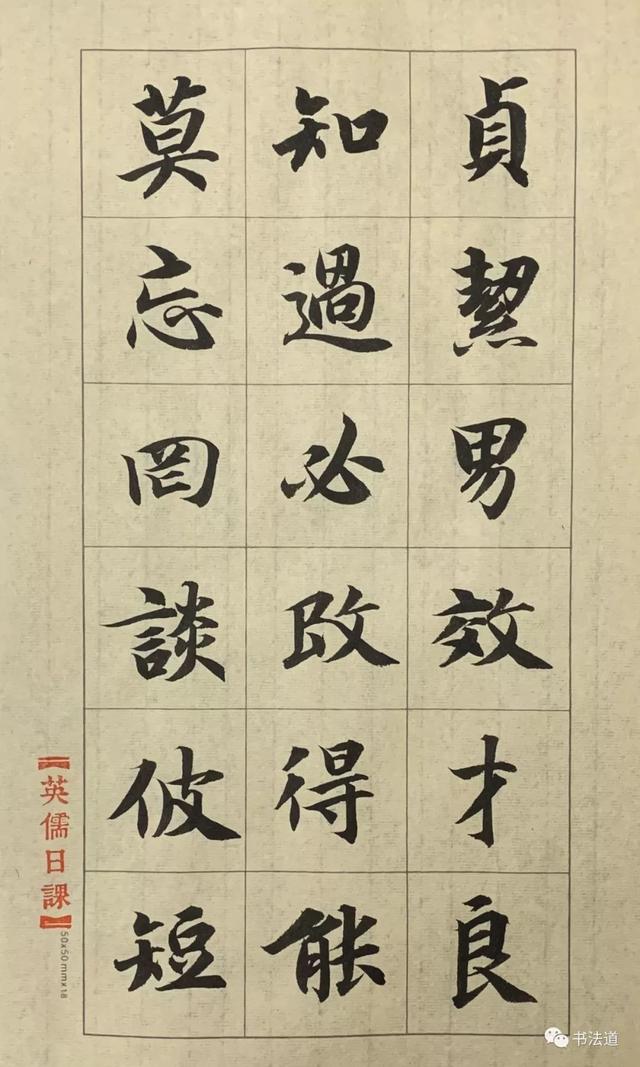 貞絜男效才良
知過必改得能
莫忘罔談彼短
【英儒日課】
50x50mmx18
书法道